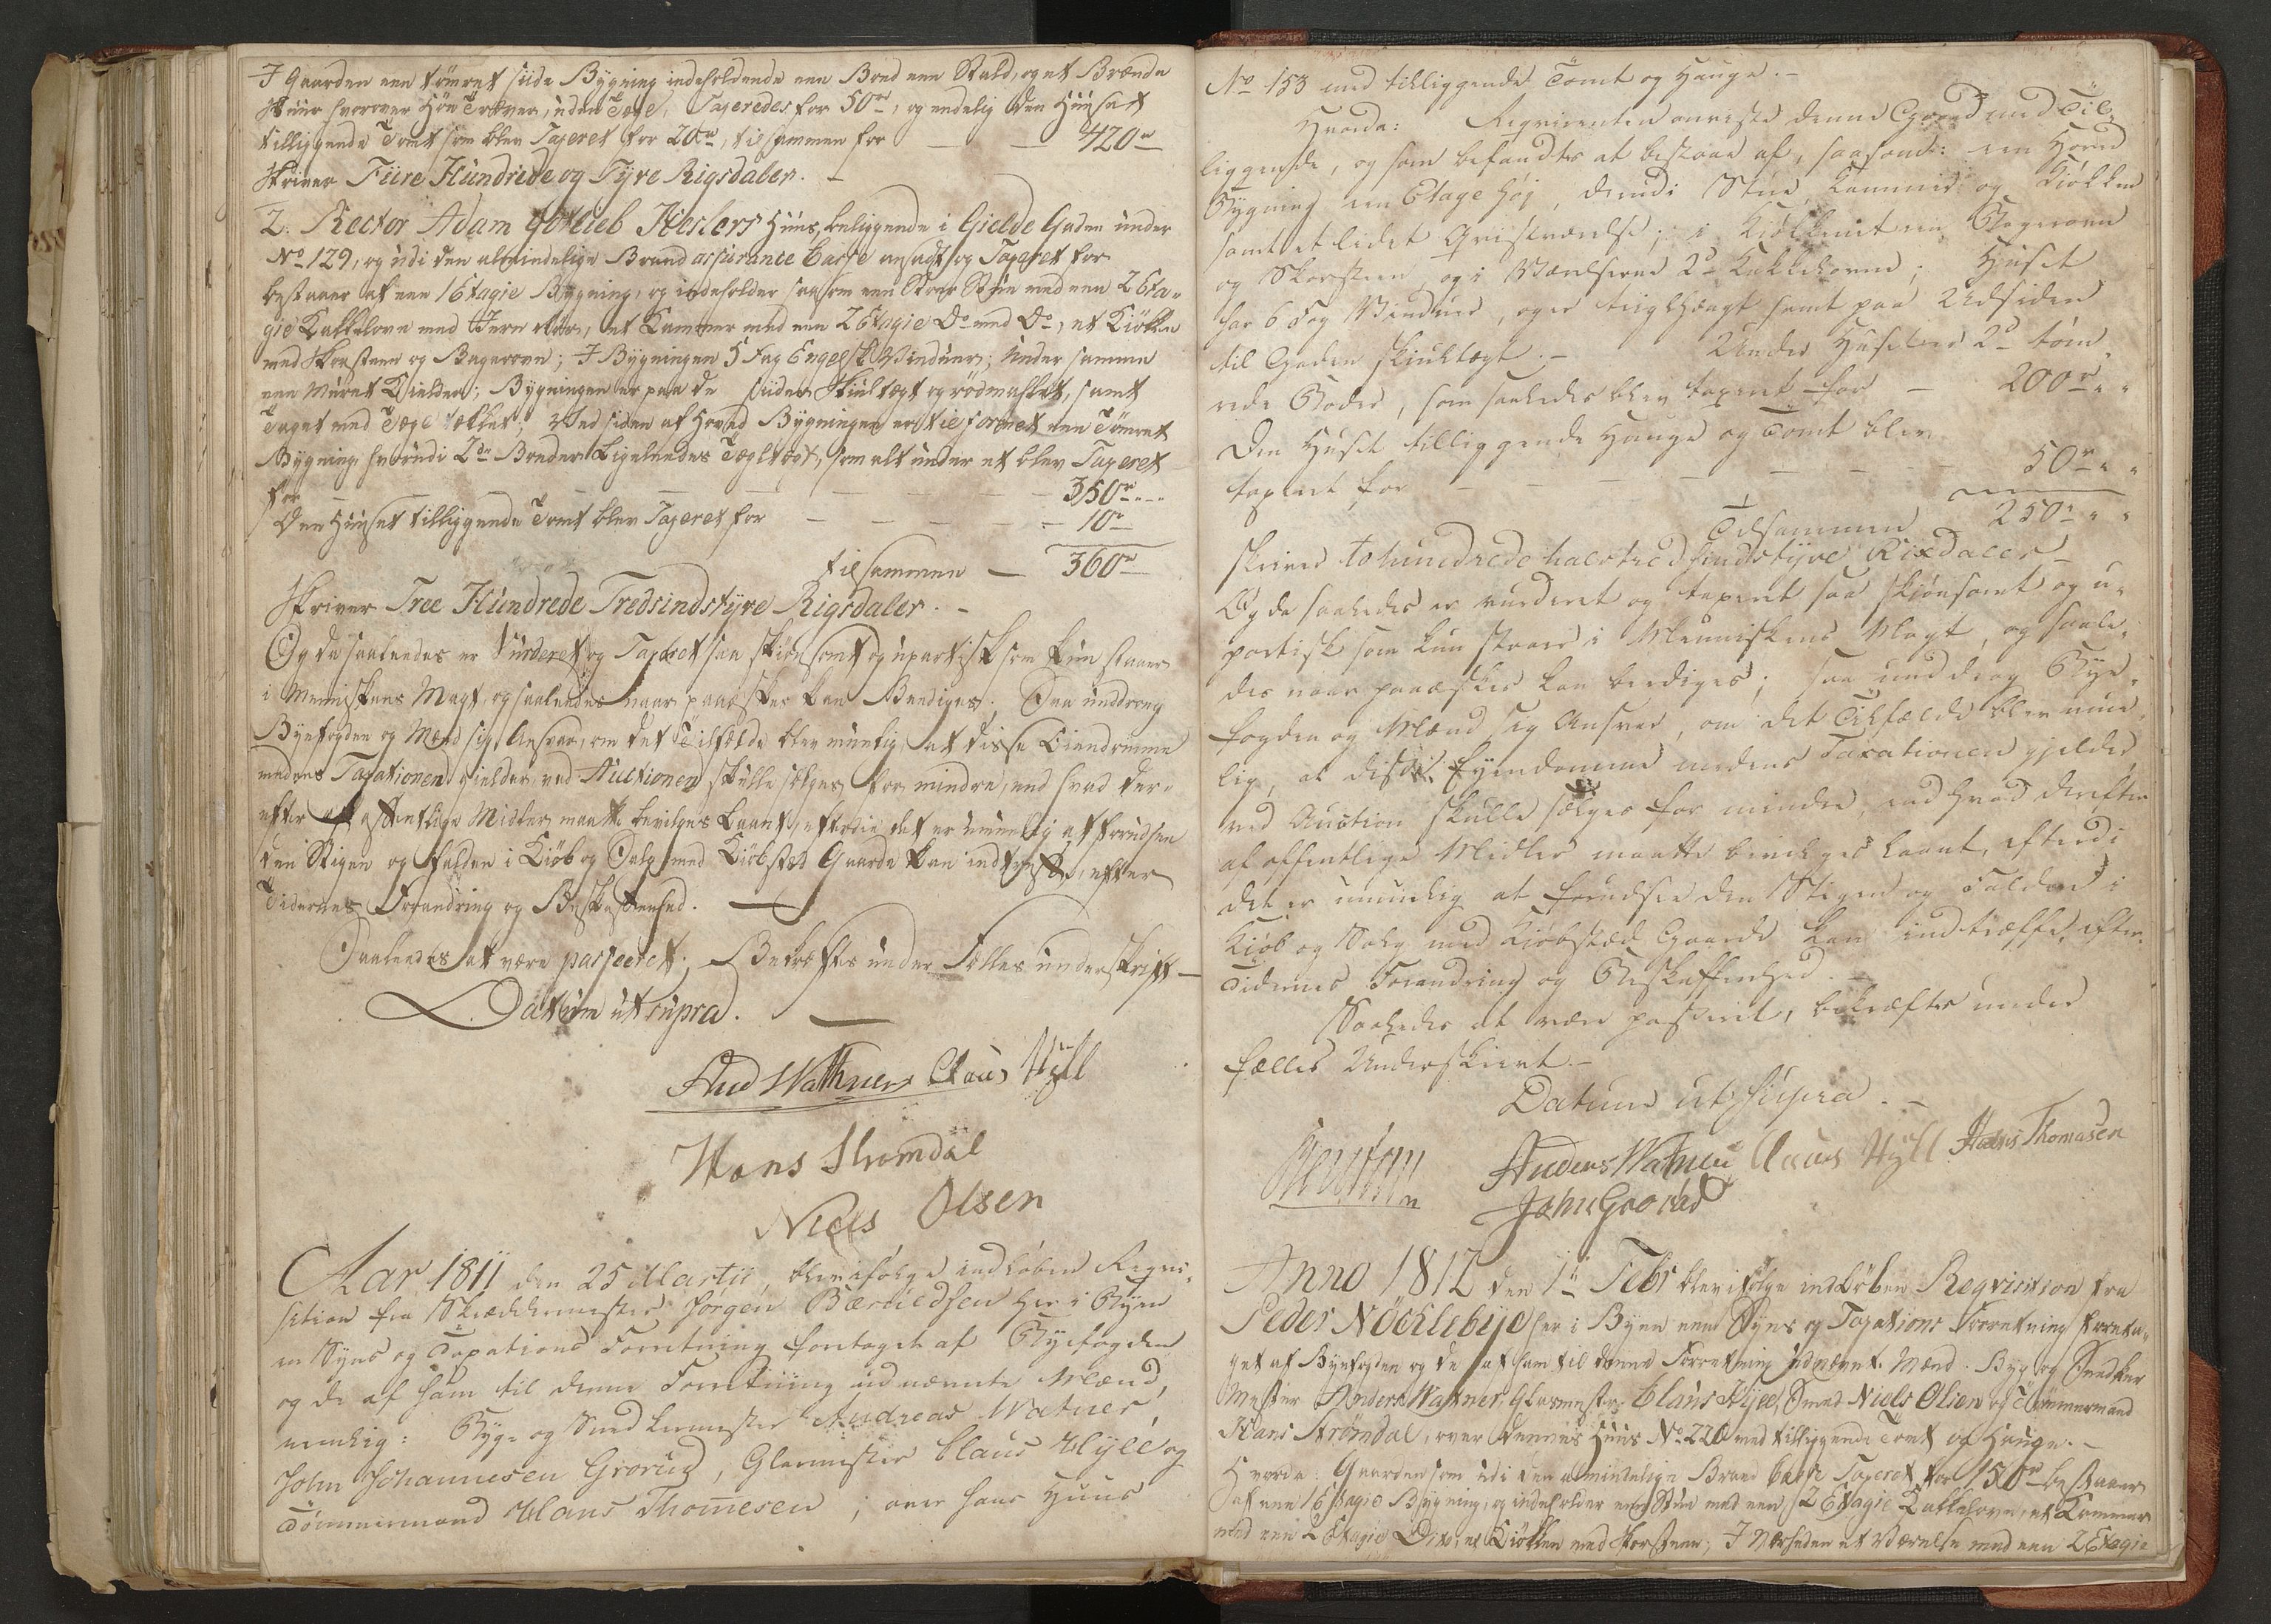 I Gaarden een tømret side Bygning indeholdende een Bod een Stald, og et Brænde
Skuur hvorover Høe Trever, uden Tage, Taxeredes for 50rd, og endelig den Huuset
tilliggende Tomt som blev Taxeret for 20rd, tilsammen for — — 420rd
Skriver Fiire Hundrede og Tyve Rigsdaler. —
2. Rector Adam Gotlieb Heslers Huus, beliggende i Gielde Gaden under
No 129, og udi den almindelige Brand assurance Casse ansadt og Taxeret for
bestaaer af een 1 Etagie Bygning, og indeholder saasom een Stor Stue med een 2 Eta-
gie Kakkelovn med Jern rør, et Kammer med een 2 Etagie Do med Do, et Kiøkken
med Skorsteen og Bagerovn; I Bygningen 5 Fag Engelsk Vinduer; Under samme
een Muret Kielder; Bygningen er paa de sider Skiultægt og rødmallet, samt
Taget med Tægl tækket; Ved siden af Hoved Bygningen er tilføiet een Tømret
Bygning hvorudi 2de Boder Ligeleedes Tægltægt, som alt under et blev Taxeret
for — — — — — — 350rd
Den Huuset tilliggende Tomt blev Taxeret for — — — — 10rd
tilsammen — 360rd
Skriver Tree Hundrede Tredsindstyve Rigsdaler. —
Og da saaleedes er Vurderet og Taxeret saa skiønsomt og upartisk som kun staaer
i Menniskens Magt, og saaleedes naar paaæskes kan Beediges; Saa unddrog
Byefogden og Mænd sig Ansvar, om det Tilfælde blev muelig at disse Eiendomme
medens Taxationen gielder, ved Auctionen skulle sælges for mindre, end hvad der-
efter af offentlige Midler maatte bevilges Laant, efterdie det er umuelig at forudsee
den Stigen og Falden i Kiøb og Salg med Kiøbstæd Gaarde kan indtreffe, efter
Tidernes Forandring og Beskaffenhed. —
Saaleedes at være passeeret; Bekræftes under Fælles underskrift —
Datum ut supra. —
And Wathner Claus Hyll
Hans Strømdal
Niels Olsen
Aar 1811 den 25 Martii, blev ifølge indkoben Reqvi-
sition fra Skræddermester Jørgen Bærnedsen her i Byen
en Syns og Taxations Forretning foretaget af Byefogden
og de af ham til denne Forretning udnævnte Mænd,
nemlig: Byg- og Snedkermester Andreas Watner,
John Johannesen Grorud, Glarmester Claus Hyll og
Tømmermand Hans Thomesen; over hans Huus
No 153 med tilliggende Tomt og Hauge. —
Hvorda: Reqvirenten anviste denne Gaard med Til-
liggende, og som befandtes at bestaae af, saasom: een Hoved
Bygning een Etage høj, derudi Stue, Kammer og Kiøkken
samt et lidet Qvistværelse; i Kiøkkenet en Bagerovn
og Skorsteen, og i Værelserne 2de Kakkelovne; Huset
har 6 Fag Vinduer, og er tiiglhængt samt paa Udsiden
til Gaden skiultægt. — Under Huset ere 2de tøm-
rede Boder, som saaledes blev taxeret for — 200rd
Den Huset tilliggende Hauge og Tomt blev
taxeret for — — — — — 50rd
Tilsammen 250rd
Skriver tohundrede halvtredsindstyve Rixdaler —
Og da saaledes er vurderet og taxeret saa skiønsomt og u-
partisk som kun staaer i Menniskens Magt, og saale-
des naar paaæskes kan beediges; saa unddrog Bye-
fogden og Mænd sig Ansvar, om det Tilfælde blev mue-
lig, at disse Eyendomme medens Taxationen gielder,
ved Auction skulle sælges for mindre, end hvad derefter
af offentlige Midler maatte bevilges laant, efterdi
det er umuelig at forudsee den Stigen og Falden i
Kiøb og Salg med Kiøbstæd Gaarde kan indtræffe, efter
Tidernes Forandring og Beskaffenhed. —
Saaledes at være passeret, bekræftes under
fælles Underskrivt. —
Datum ut supra. —
Anders Watner Claus Hyll Hans Thomasen
John Grorud
Anno 1812 den 1te Febr blev ifølge indkoben Reqvisition fra
Peder Nöcklebye her i Byen een Syns og Taxations Forretning foreta-
get af Byefogden og de af ham til denne Forretning udnævnte Mænd. Byg og Snedker
Mester Anders Wattner, Glarmester Claus Hyll, Smed Niels Olsen og Tømmermand
Hans Strømdal, over dennes Huus No 220 med tilliggende Tomt og Hauge. —
Hvorda: Gaarden som udi den almindelige Brand Casse Taxeret for 150rd bestaaer
af een 1 Etagie Bygning, og indeholder een Stue med een 2 Etagie Kakkelovn, et Kammer
med een 2 Etagie Dito, et Kiøkken med Skorsteen; I Nærheden et Værelse med een 2 Etagie